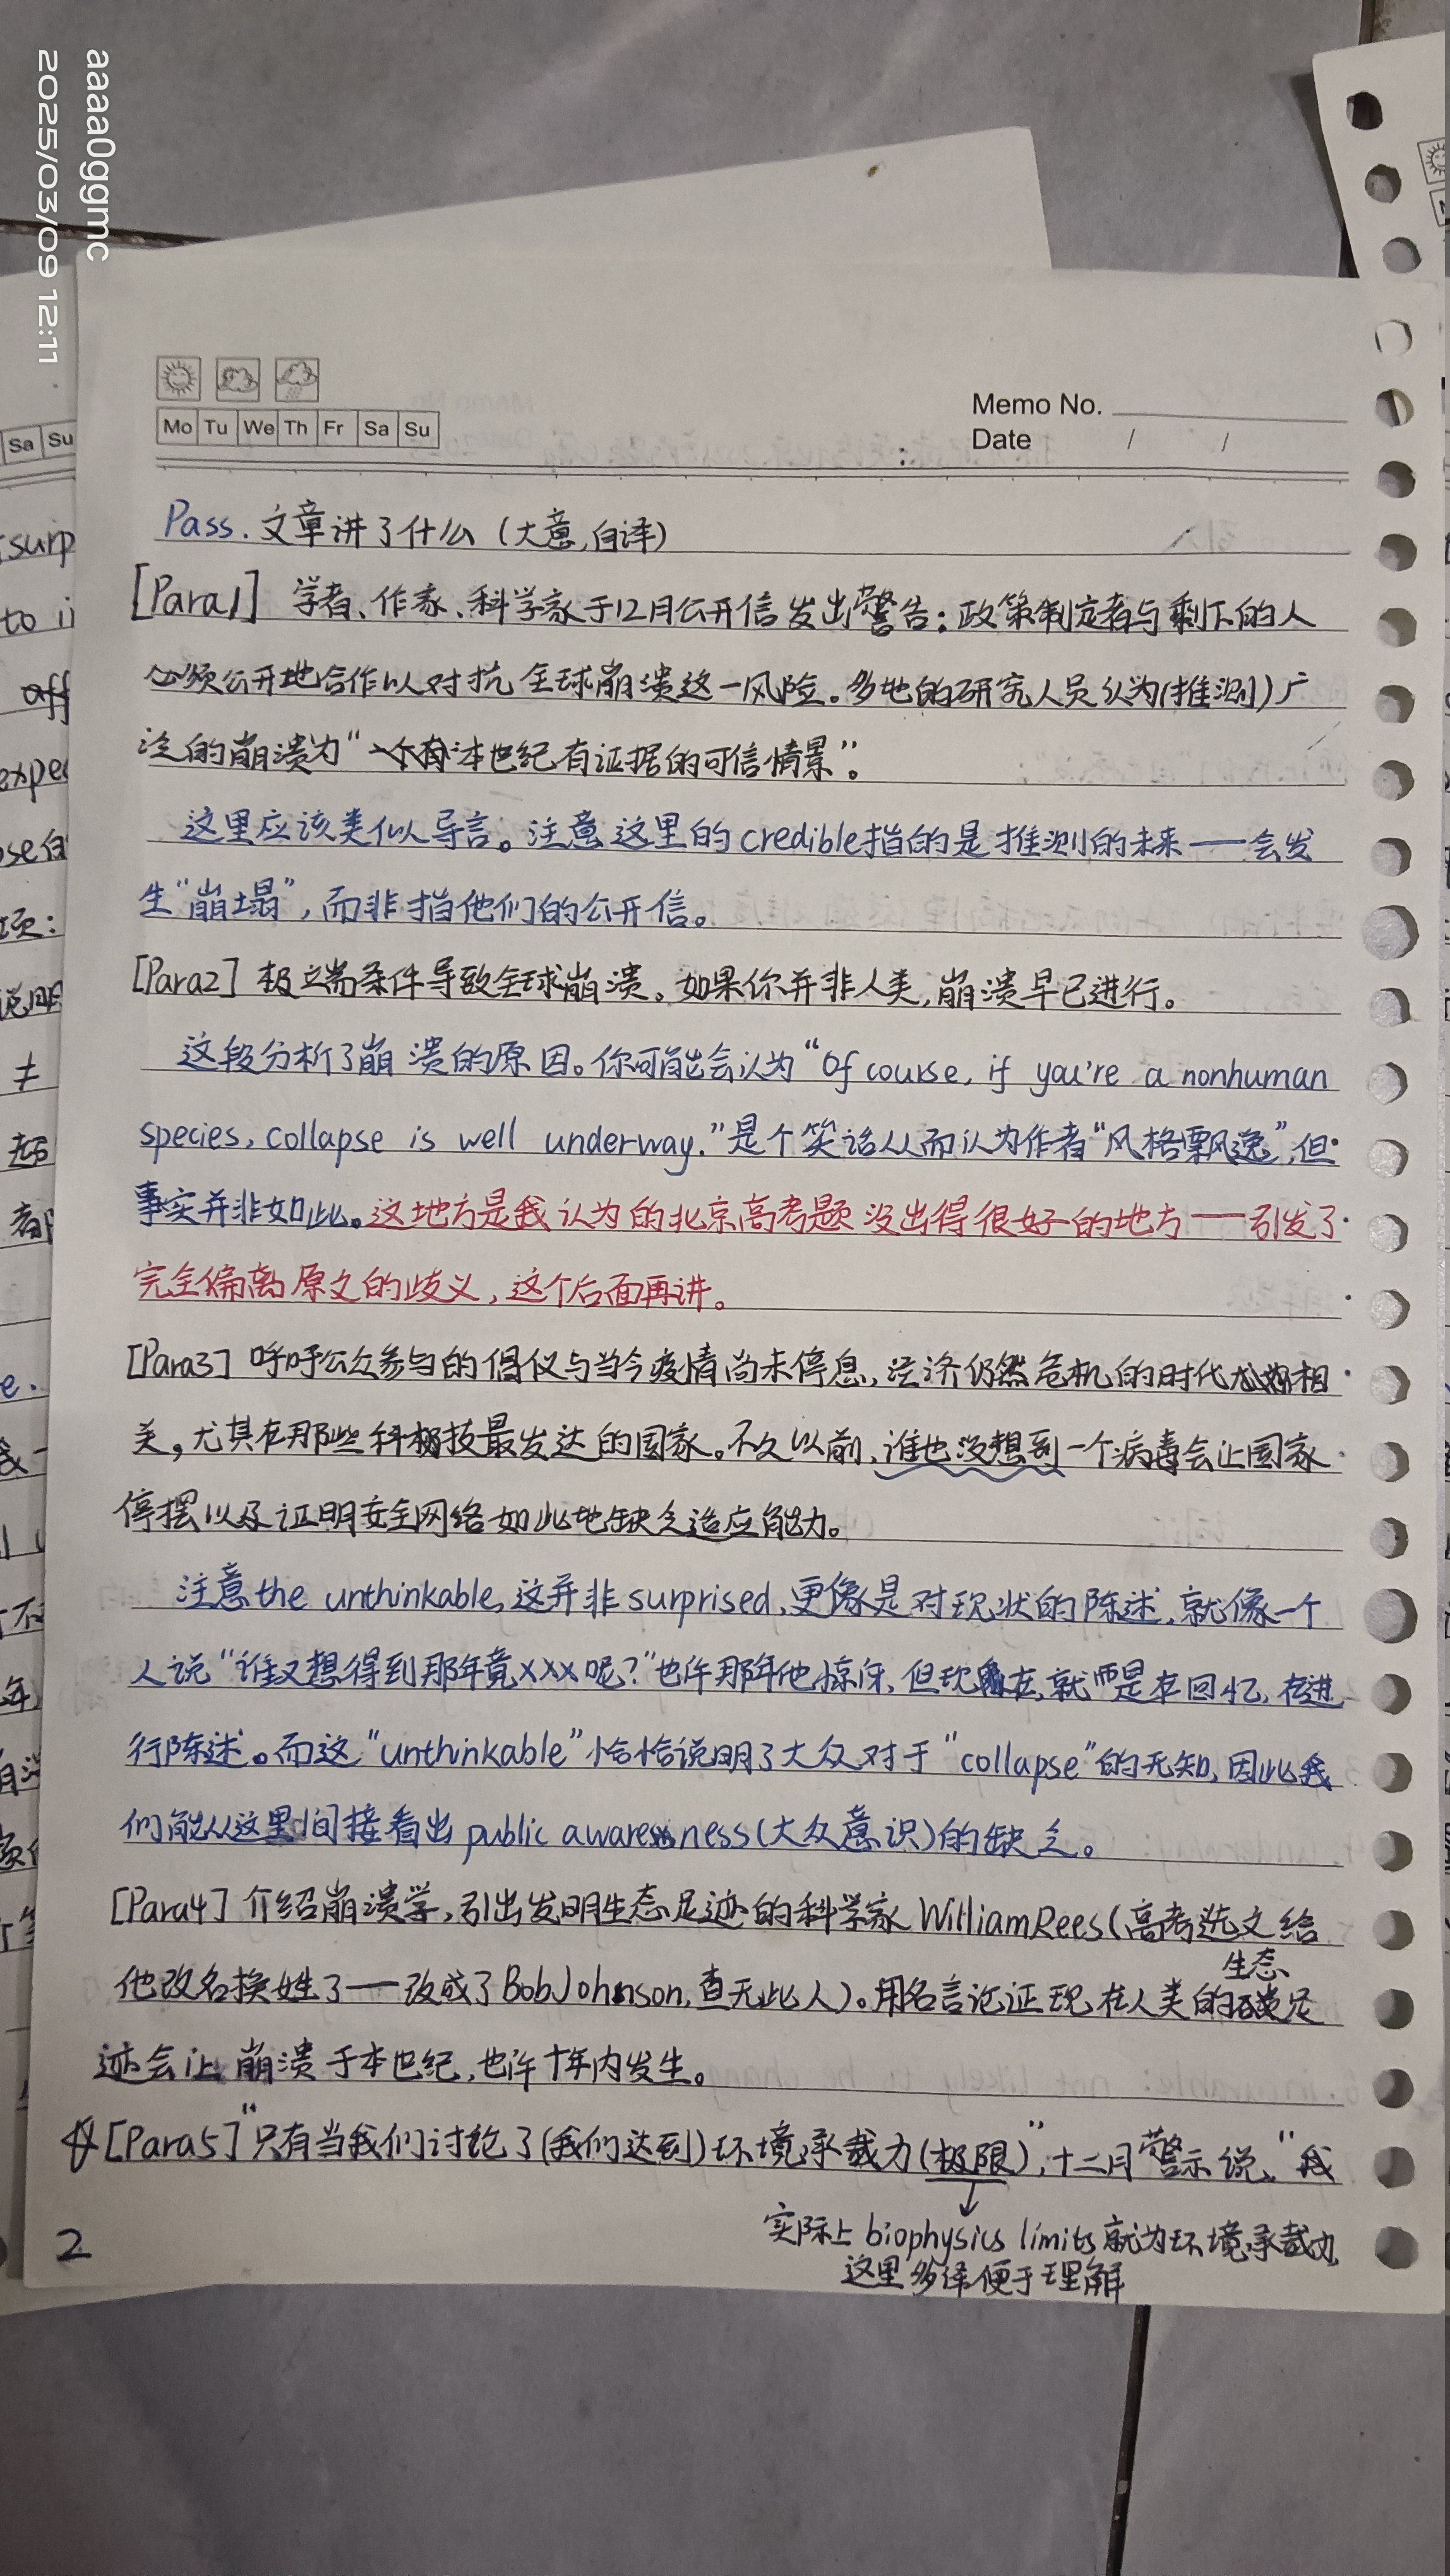 aaaa0ggmc
2025/03/09 12:11
Sa Su
Mo Tu We Th Fr Sa Su
Memo No.
Date / /
Pass. 文章讲了什么（大意,自译）
[Para1] 学者、作家、科学家于12月公开信发出警告：政策制定者与剩下的人
必须公开地合作以对抗全球崩溃这一风险。多地的研究人员认为(推测)广
泛的崩溃为“本世纪有证据的可信情景”。
这里应该类似导言。注意这里的credible指的是推测的未来——会发
生“崩塌”,而非指他们的公开信。
[Para2] 极端条件导致全球崩溃。如果你并非人类,崩溃早已进行。
这段分析了崩溃的原因。你可能会认为“Of course, if you're a nonhuman
species, collapse is well underway.”是个笑话从而认为作者“风格飘逸”,但
事实并非如此。这地方是我认为的北京高考题没出得很好的地方——引发了
完全偏离原文的歧义,这个后面再讲。
[Para3] 呼吁公众参与的倡仪与当今疫情尚未停息,经济仍然危机的时代相
关。尤其在那些科技最发达的国家。不久以前,谁也没想到一个病毒会让国家
停摆以及证明安全网络如此地缺乏适应能力。
注意the unthinkable,这并非surprised,更像是对现状的陈述,就像一个
人说“谁又想得到那年竟xxx呢?”也许那年他惊讶,但现在,就是在回忆,在进
行陈述。而这“unthinkable”恰恰说明了大众对于“collapse”的无知,因此我
们能从这里间接看出public awareness(大众意识)的缺乏。
[Para4] 介绍崩溃学,引出发明生态足迹的科学家WilliamRees(高考选文给
他改名换姓了——改成了BobJohnson,查无此人)。用名言论证现在人类的生态足
迹会让崩溃于本世纪,也许十年内发生。
☆[Para5]“只有当我们讨论了(我们达到)环境承载力(极限)”,十二月警示说、“我
实际上biophysics limits就为环境承载力,
这里多译便于理解
2